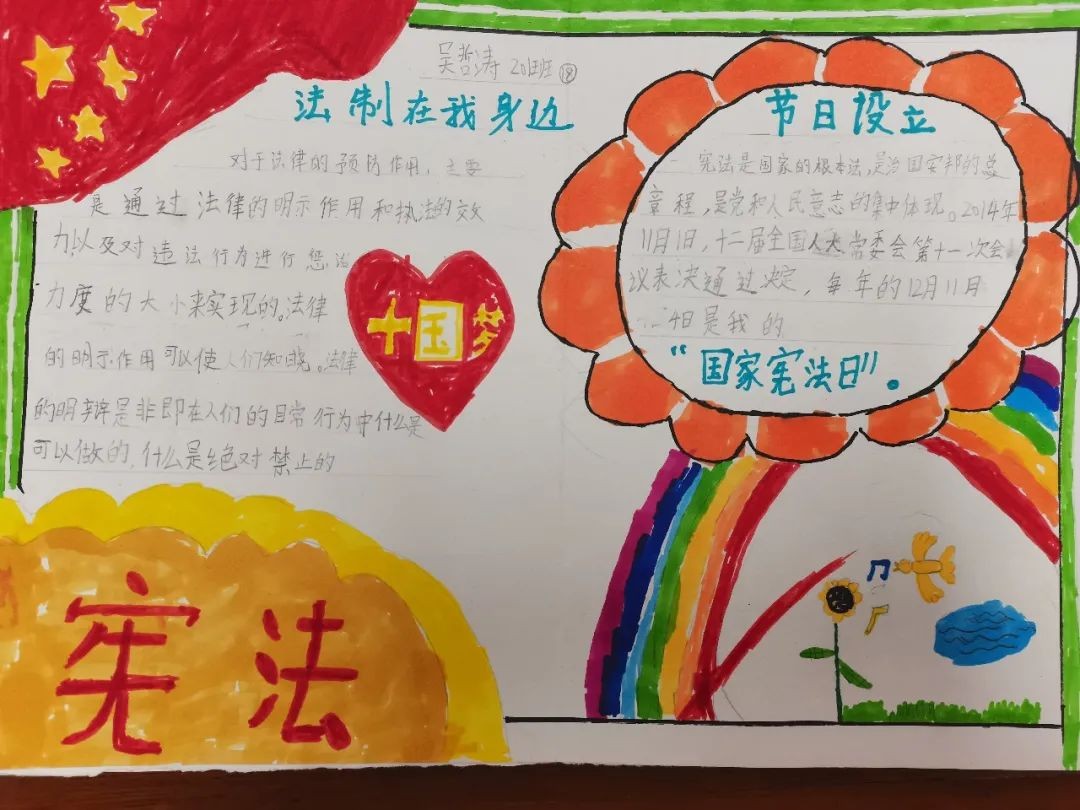 吴哲涛 201班⑱
法制在我身边
对于法律的预防作用，主要
是通过法律的明示作用和执法的效
力以及对违法行为进行惩治
力度的大小来实现的。法律
的明示作用可以使人们知晓。法律
的明辩是非即在人们的日常行为中什么是
可以做的，什么是绝对禁止的
十国梦
宪法
节日设立
宪法是国家的根本法，是治国安邦的总
章程，是党和人民意志的集中体现。2014年
11月1日，十二届全国人大常委会第十一次会
议表决通过决定，每年的12月11月
二4日是我的
“国家宪法日”。